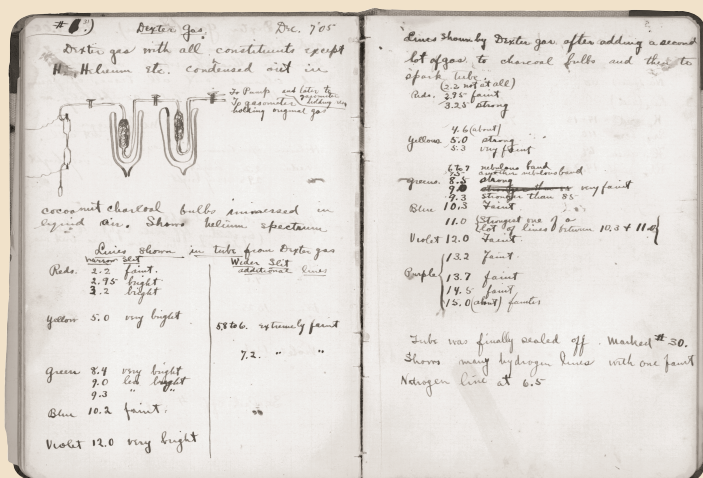 Dexter Gas. Dec. 7 '05
Dexter gas with all constituents except
H. Helium Etc. condensed out in
To Pump and later to
To gasometer
holding original gas
cocoanut charcoal bulbs immersed in
liquid air. Shows helium spectrum
Lines shown in tube from Dexter gas
Narrow Slit
Reds. 2.2 faint.
2.95 bright
3.2 bright
Yellow 5.0 very bright
Green 8.4 very bright
9.0 less bright
9.3 " "
Blue 10.2 faint.
Violet 12.0 very bright
Wider Slit
additional lines
5.8 to 6. extremely faint
7.2. " "
Lines Shown by Dexter gas after adding a second
lot of gas to charcoal bulbs and then to
spark tube.
(2.2 not at all)
Reds. 2.95 faint
3.25 strong
4.6 (about)
Yellows 5.0 strong
5.3 very faint
6 to 7 nebulous band
7.5 another nebulous band
Greens. 8.5 strong
very faint
9.3 stronger than 8.5
Blue 10.3 Faint
11.0 Strongest one of a
lot of lines between 10.3 + 11.0
Violet 12.0 Faint.
Purple 13.2 faint
13.7 faint
14.5 faint
15.0 (about) fainter
Tube was finally sealed off. Marked # 30.
Shows many hydrogen lines with one faint
Nitrogen line at 6.5